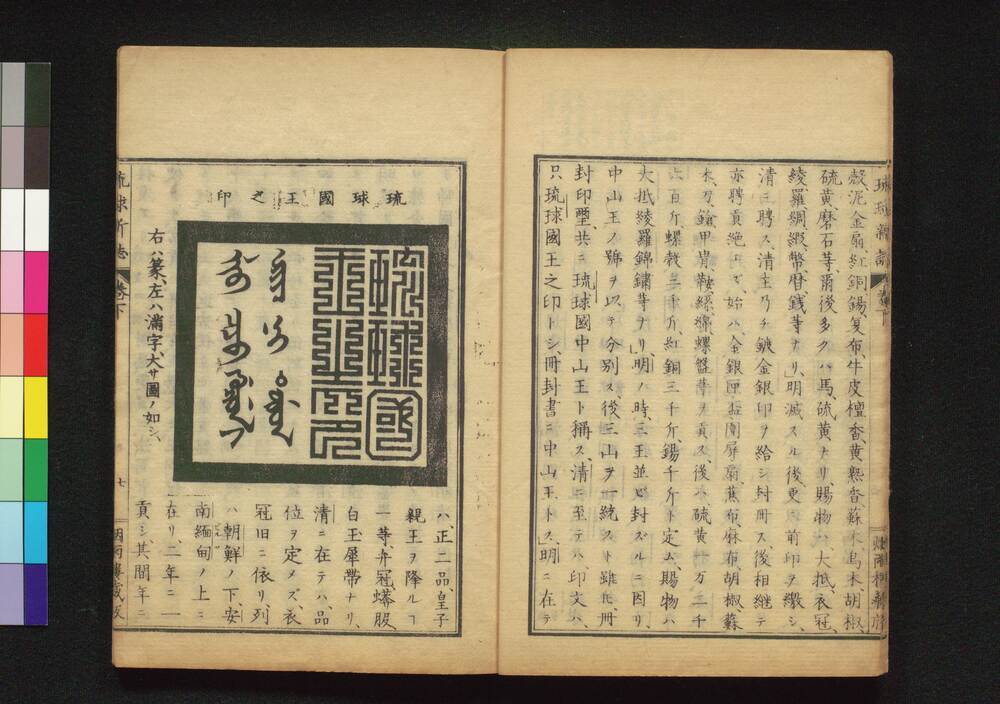 殻泥金扇、紅銅、錫、夏布、牛皮、檀香、黄熟香、蘇木、烏木、胡椒、
硫黄、磨石等、爾後多クハ馬、硫黄ナリ、賜物ハ大抵、衣冠、
綾、羅、綢、緞、幣、暦、銭等ナリ、明滅スル後、更ニ前印ヲ繳シ、
清ニ聘ス、清主乃チ鍍金銀印ヲ給シ封冊ス、後相継テ
亦聘貢絶エズ、始ハ金銀匣、圍屏、扇、蕉布、麻布、胡椒、蘇
木、刀、鎗、甲冑、鞍、螺盤等ヲ貢ス、後ハ硫黄一万二千
六百斤、螺殻三千斤、紅銅三千斤、錫千斤ト定ム、賜物ハ
大抵綾羅錦繍等ナリ、明ノ時、三王並ビ封ズルニ因リ、
中山王ノ號ヲ以テ分別ス、後三山ヲ一統スト雖𪜈、冊
封印璽、共ニ琉球國中山王ト稱ス、清ニ至テハ、印文ハ、
只琉球國王之印トシ、冊封書ニ中山王トス、明ニ在テ
琉球新誌
卷下
琉球國王之印
琉球國王之印
右ハ篆、左ハ滿字、大サ圖ノ如シ、
ハ、正二品、皇子
親王ヲ降ルヿ
一等、弁冠、蟒服、
白玉犀帶ナリ、
清ニ在テハ、品
位ヲ定メズ、衣
冠旧ニ依リ列
ハ朝鮮ノ下、安
南緬甸ノ上ニ
在リ、二年ニ一
貢シ、其間年ニ
琉球新誌
卷下
七